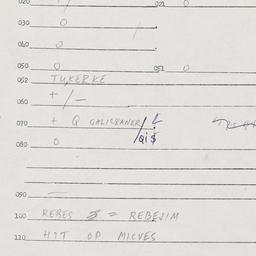 020 021 0
030 0
040 0
050 0 051 0
052 TUKERKE
+/-
060
070 + Q CALIBRANER/
080 0 /Qi$
090
100 KEBES = REBEJIM
110 HJT OP MICVES